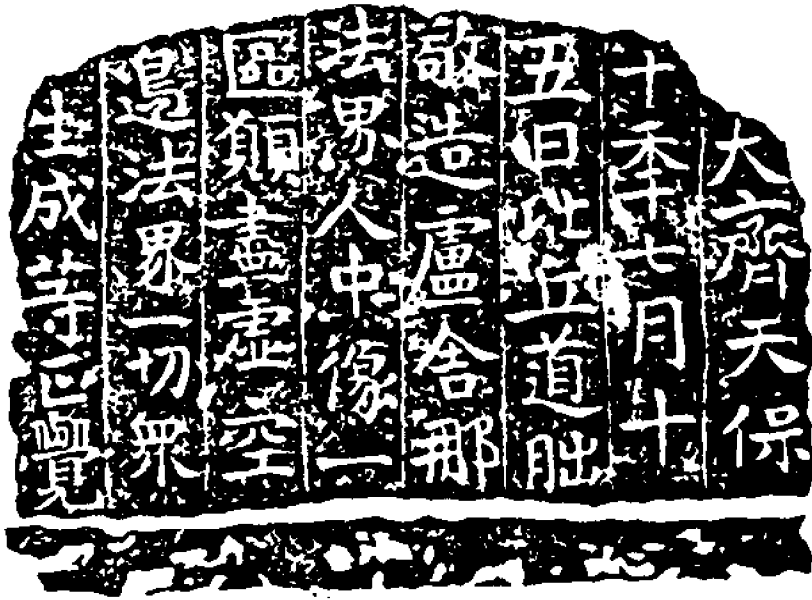 大齊天保
十年七月十
五日比丘道朏
敬造盧舍那
法界人中像一
區願盡虛空
邊法界一切眾
生成等正覺